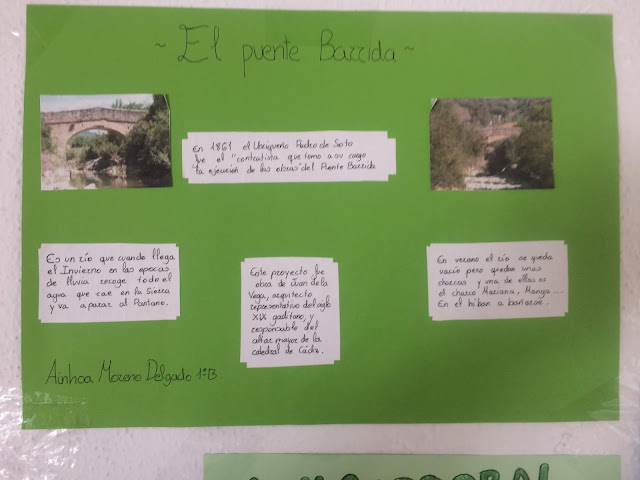 ~ El puente Barrida ~
En 1861 el Ubriqueño Pedro de Soto
fue el "contratista que tomo a su cargo
la ejecucion de las obras" del Puente Barrida
Es un río que cuando llega
el Invierno en las epocas
de lluvia recoge todo el
agua que cae en la Sierra
y va a parar al Pantano.
Este proyecto fue
obra de Juan de la
Vega, arquitecto
representativo del siglo
XIX gaditano, y
responsable del
altar mayor de la
catedral de Cádiz.
En verano el río se queda
vacío pero quedan unas
charcas y una de ellas es
el charco Mariana, Manga...
En el hiban a bañarse.
Ainhoa Moreno Delgado 1ºB